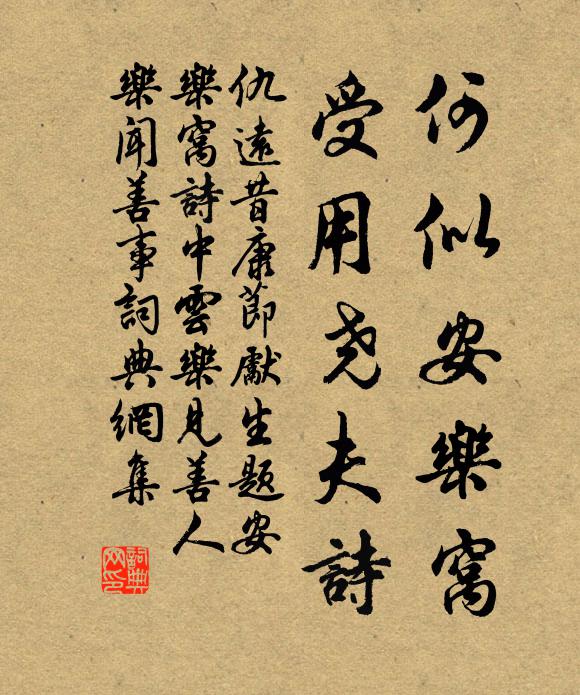 何似安樂窩
受用尧夫詩
仇遠昔康節獻生題安
樂窩詩中雲樂見善人
樂聞善事詞典網集
詞典网印